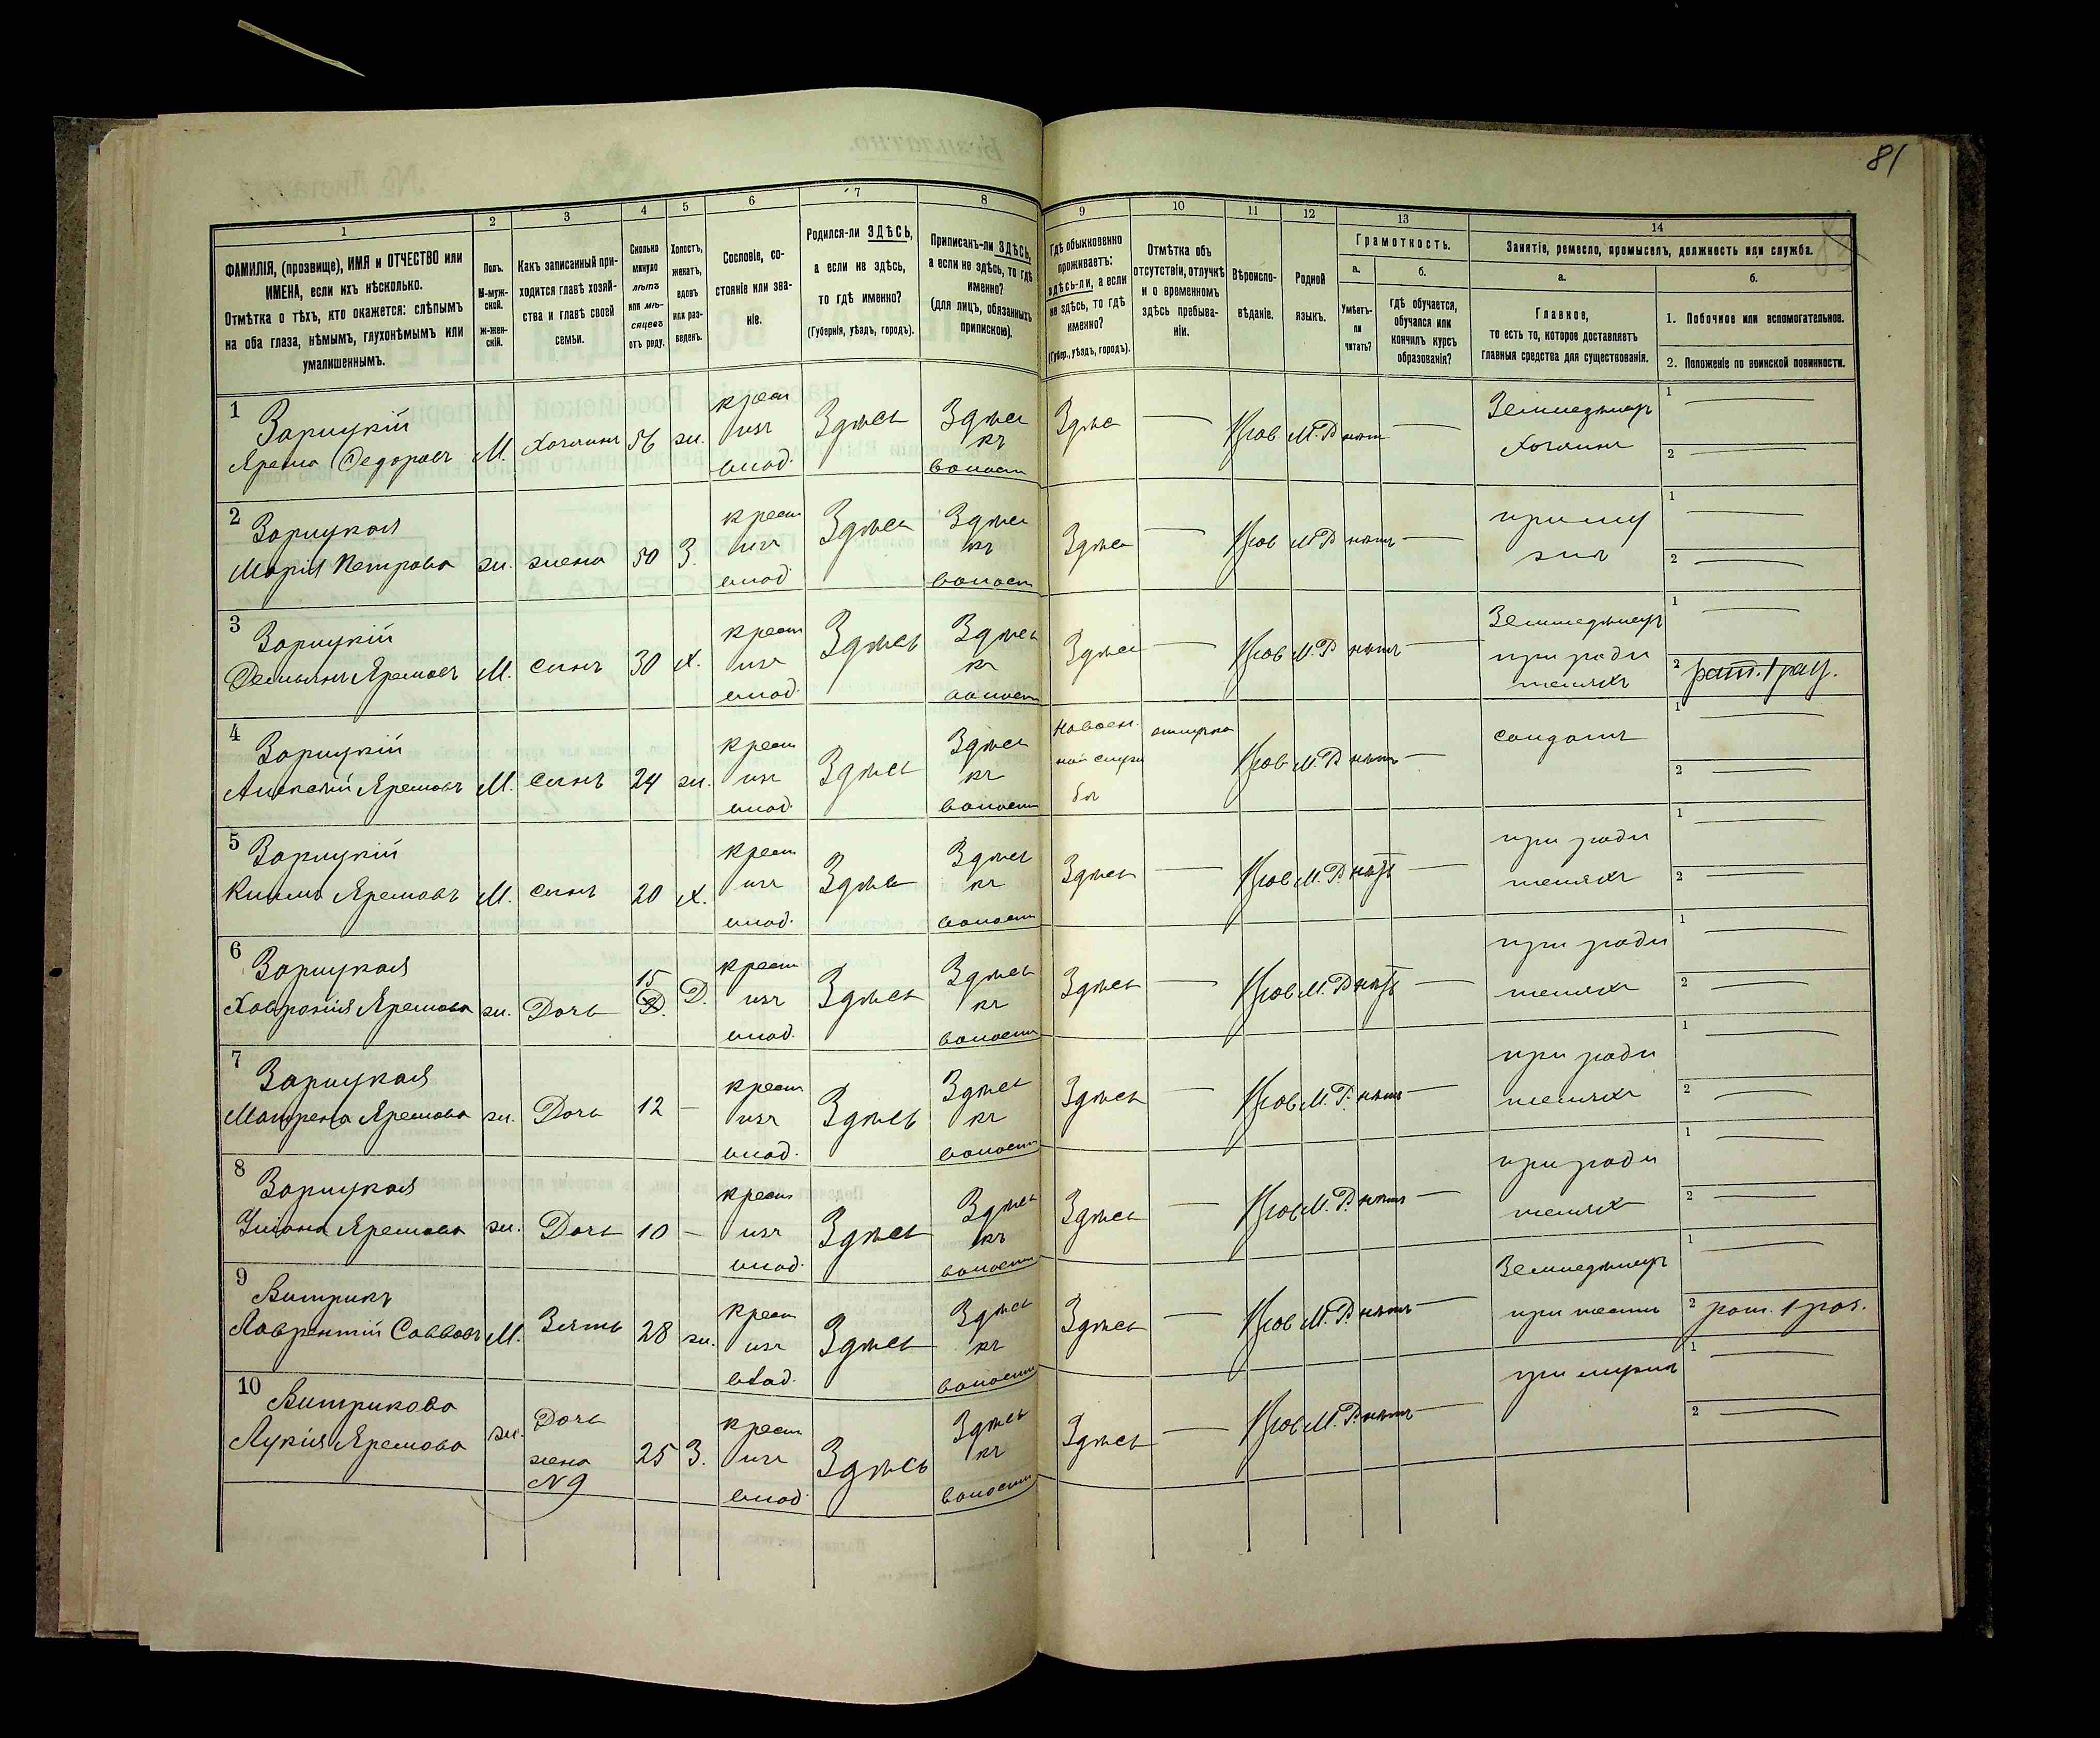 81
1
ФАМИЛІЯ, (прозвище), ИМЯ и ОТЧЕСТВО или
ИМЕНА, если ихъ нѣсколько.
Отмѣтка о тѣхъ, кто окажется: слѣпымъ
на оба глаза, нѣмымъ, глухонѣмымъ или
умалишеннымъ.
2
Полъ.
М-муж-
ской.
Ж-жен-
скій.
3
Какъ записанный при-
ходится главѣ хозяй-
ства и главѣ своей
семьи.
4
Сколько
минуло
лѣтъ
или мѣ-
сяцевъ
отъ роду.
5
Холостъ,
женатъ,
вдовъ
или раз-
веденъ.
6
Сословіе, со-
стояніе или зва-
ніе.
7
Родился-ли ЗДѢСЬ,
а если не здѣсь,
то гдѣ именно?
(Губернія, уѣздъ, городъ).
8
Приписанъ-ли ЗДѢСЬ,
а если не здѣсь, то гдѣ
именно?
(для лицъ, обязанныхъ
припискою).
9
Гдѣ обыкновенно
проживаетъ:
здѣсь-ли, а если
не здѣсь, то гдѣ
именно?
(Губер., уѣздъ, городъ).
10
Отмѣтка объ
отсутствіи, отлучкѣ
и о временномъ
здѣсь пребыва-
ніи.
11
Вѣроиспо-
вѣданіе.
12
Родной
языкъ.
13
Грамотность.
а.
Умѣетъ-
ли
читать?
б.
гдѣ обучается,
обучался или
кончилъ курсъ
образованія?
14
Занятіе, ремесло, промыселъ, должность или служба.
а.
Главное,
то есть то, которое доставляетъ
главныя средства для существованія.
б.
1. Побочное или вспомогательное.
2. Положеніе по воинской повинности.
1 Зарицкій
Ярема Федоровъ М. Хозяинъ 56 ж. крест изъ влад. Здѣсь Здѣсь къ волост Здѣсь — Прав. М.Р. нѣтъ — Земледѣлецъ Хозяинъ 1 — 2 —
2 Зарицкая
Марія Петрова ж. жена 50 З. крест изъ влад Здѣсь Здѣсь къ волост Здѣсь — Прав М.Р. нѣтъ — при му жѣ 1 — 2 —
3 Зарицкій
Демьянъ Яремовъ М. сынъ 30 х. крест изъ влад. Здѣсь Здѣсь къ волост Здѣсь — Прав М.Р. нѣтъ — Земледѣлецъ при роди теляхъ 1 — 2 рат. 1 раз.
4 Зарицкій
Алексѣй Яремовъ М. сынъ 24 ж. крест изъ влад. Здѣсь Здѣсь къ волост На воен ной служ бѣ отлучка Прав М.Р. нѣтъ — солдатъ 1 — 2 —
5 Зарицкій
Яремовъ М. сынъ 20 х. крест изъ влад. Здѣсь Здѣсь къ волост Здѣсь — Прав М.Р. нѣтъ — при роди теляхъ 1 — 2 —
6 Зарицкая
Хавронія Яремова ж. Дочь 15 Д. крест изъ влад. Здѣсь Здѣсь къ волост Здѣсь — Прав М.Р. нѣтъ — при роди теляхъ 1 — 2 —
7 Зарицкая
Матрена Яремова ж. Дочь 12 — крест изъ влад. Здѣсь Здѣсь къ волост Здѣсь — Прав М.Р. нѣтъ — при роди теляхъ 1 — 2 —
8 Зарицкая
Уліана Яремова ж. Дочь 10 — крест изъ влад. Здѣсь Здѣсь къ волост Здѣсь — Прав М.Р. нѣтъ — при роди теляхъ 1 — 2 —
9 Витрикъ
Лаврентій Саввовъ М. Зять 28 ж. крест изъ влад. Здѣсь Здѣсь къ волост Здѣсь — Прав М.Р. нѣтъ — Земледѣлецъ при тестѣ 1 — 2 рат. 1 раз.
10 Витрикова
Лукія Яремова ж. Дочь жена N 9 25 З. крест изъ влад. Здѣсь Здѣсь къ волост Здѣсь — Прав М.Р. нѣтъ — при мужѣ 1 — 2 —